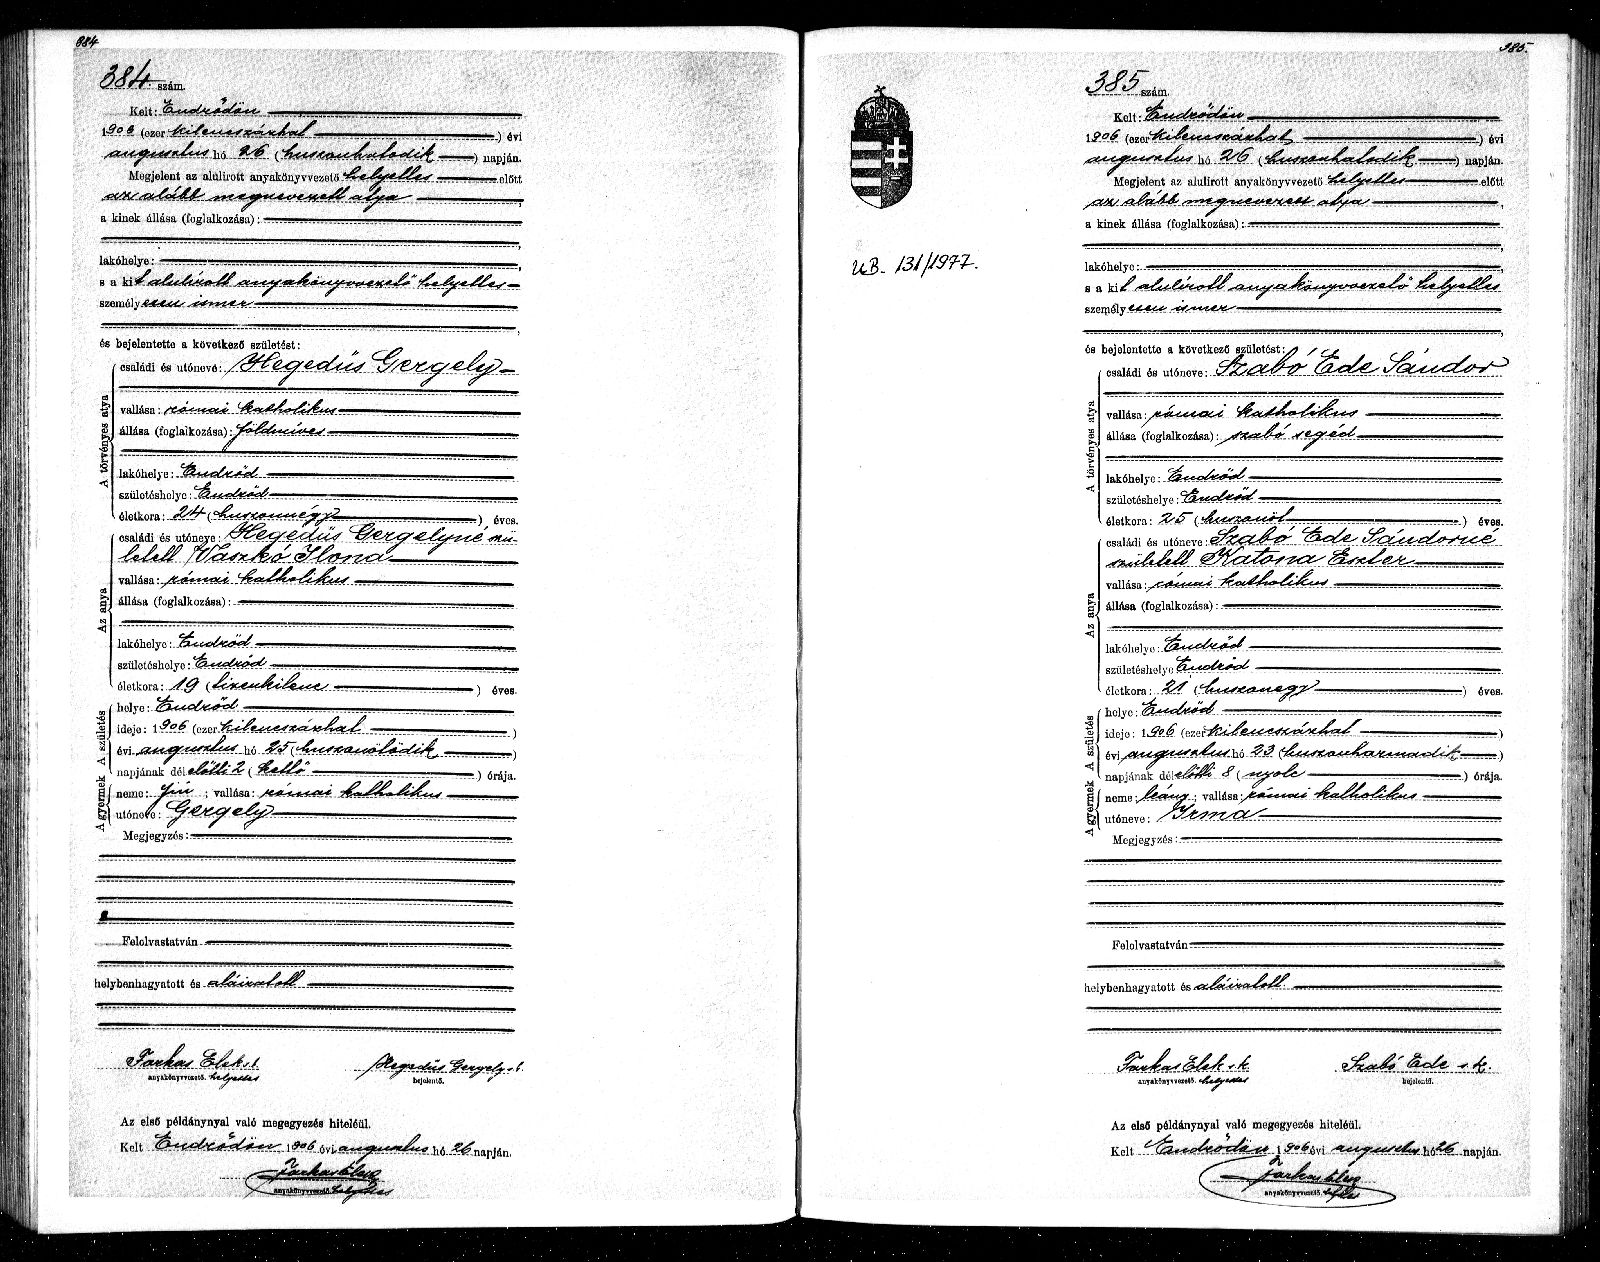 384
384. szám.
Kelt: Endrődön
1906 (ezer kilencszázhat) évi
augusztus hó 26 (huszonhatodik) napján.
Megjelent az alulirott anyakönyvvezető helyettes előtt
az alább megnevezett atya,
a kinek állása (foglalkozása):
lakóhelye:
s a kit alulírott anyakönyvvezető helyettes
személyesen ismer
és bejelentette a következő születést:
A törvényes atya
családi és utóneve: Hegedűs Gergely
vallása: római katholikus
állása (foglalkozása): földmíves
lakóhelye: Endrőd
születéshelye: Endrőd
életkora: 24 (huszonnégy) éves.
Az anya
családi és utóneve: Hegedűs Gergelyné szü-
letett Vaszkó Ilona
vallása: római katholikus
állása (foglalkozása):
lakóhelye: Endrőd
születéshelye: Endrőd
életkora: 19 (tizenkilenc) éves.
A gyermek A születés
helye: Endrőd
ideje: 1906 (ezer kilencszázhat)
évi augusztus hó 25 (huszonötödik)
napjának délelőtti 2 (kettő) órája.
neme: fiú; vallása: római katholikus
utóneve: Gergely
Megjegyzés:
Felolvastatván
helybenhagyatott és aláiratott
Farkas Elek s. k.
anyakönyvvezető. helyettes
Hegedűs Gergely s. k.
bejelentő.
Az első példánynyal való megegyezés hiteléül.
Kelt Endrődön 1906 évi augusztus hó 26 napján.
Farkas Elek
anyakönyvvezető. helyettes
385.
385 szám.
UB. 131/1977.
Kelt: Endrődön
1906 (ezer kilencszázhat) évi
augusztus hó 26 (huszonhatodik) napján.
Megjelent az alulirott anyakönyvvezető helyettes előtt
az alább megnevezett atya,
a kinek állása (foglalkozása):
lakóhelye:
s a kit alulírott anyakönyvvezető helyettes
személyesen ismer
és bejelentette a következő születést:
A törvényes atya
családi és utóneve: Szabó Ede Sándor
vallása: római katholikus
állása (foglalkozása): szabó segéd
lakóhelye: Endrőd
születéshelye: Endrőd
életkora: 25 (huszonöt) éves.
Az anya
családi és utóneve: Szabó Ede Sándorné
született Katona Eszter
vallása: római katholikus
állása (foglalkozása):
lakóhelye: Endrőd
születéshelye Endrőd
életkora: 21 (huszonegy) éves.
A gyermek A születés
helye: Endrőd
ideje: 1906 (ezer kilencszázhat)
évi augusztus hó 23 (huszonharmadik)
napjának délelőtti 8 (nyolc) órája.
neme: leány; vallása: római katholikus
utóneve: Irma
Megjegyzés:
Felolvastatván
helybenhagyatott és aláiratott
Farkas Elek s. k.
anyakönyvvezető. helyettes
Szabó Ede s. k.
bejelentő.
Az első példánynyal való megegyezés hiteléül.
Kelt Endrődön 1906 évi augusztus hó 26 napján.
Farkas Elek
anyakönyvvezető. helyettes